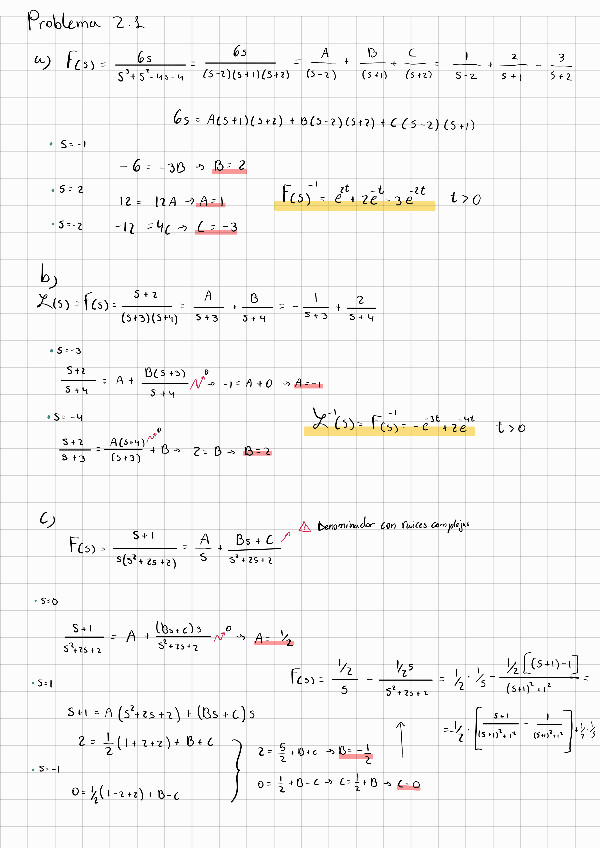 Problema 2.1
a) F(s) = 6s / (s³+s²-4s-4) = 6s / ((s-2)(s+1)(s+2)) = A/(s-2) + B/(s+1) + C/(s+2) = 1/(s-2) + 2/(s+1) - 3/(s+2)
6s = A(s+1)(s+2) + B(s-2)(s+2) + C(s-2)(s+1)
• s=-1
-6 = -3B → B=2
• s=2
12 = 12A → A=1
F(s)⁻¹ = e^{2t} + 2e^{-t} - 3e^{-2t} t>0
• s=-2
-12 = 4C → C=-3
b)
ℒ(s) = F(s) = (s+2) / ((s+3)(s+4)) = A/(s+3) + B/(s+4) = - 1/(s+3) + 2/(s+4)
• s=-3
(s+2)/(s+4) = A + B(s+3)/(s+4) ↗0 → -1 = A+0 → A=-1
• s=-4
ℒ⁻¹(s) = F(s)⁻¹ = -e^{-3t} + 2e^{-4t} t>0
(s+2)/(s+3) = A(s+4)/(s+3) ↗0 + B → 2=B → B=2
c)
⚠ Denominador con raices complejas
F(s) = (s+1) / (s(s²+2s+2)) = A/s + (Bs+C)/(s²+2s+2)
• s=0
(s+1)/(s²+2s+2) = A + (Bs+c)s/(s²+2s+2) ↗0 → A=1/2
F(s) = (1/2)/s - (1/2 s)/(s²+2s+2) = 1/2 · 1/s - 1/2[(s+1)-1]/((s+1)²+1²) =
• s=1
s+1 = A(s²+2s+2) + (Bs+C)s
= -1/2 · [(s+1)/((s+1)²+1²) - 1/((s+1)²+1²)] + 1/2 · 1/s
2 = 1/2 (1+2+2) + B+C
2 = 5/2 + B+C → B=-1/2
• s=-1
0 = 1/2 + B-C → C = 1/2 + B → C=0
0 = 1/2(1-2+2) + B-C